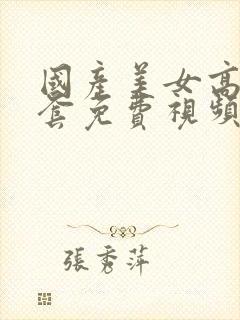 國產美女高
套免費視頻
張秀萍